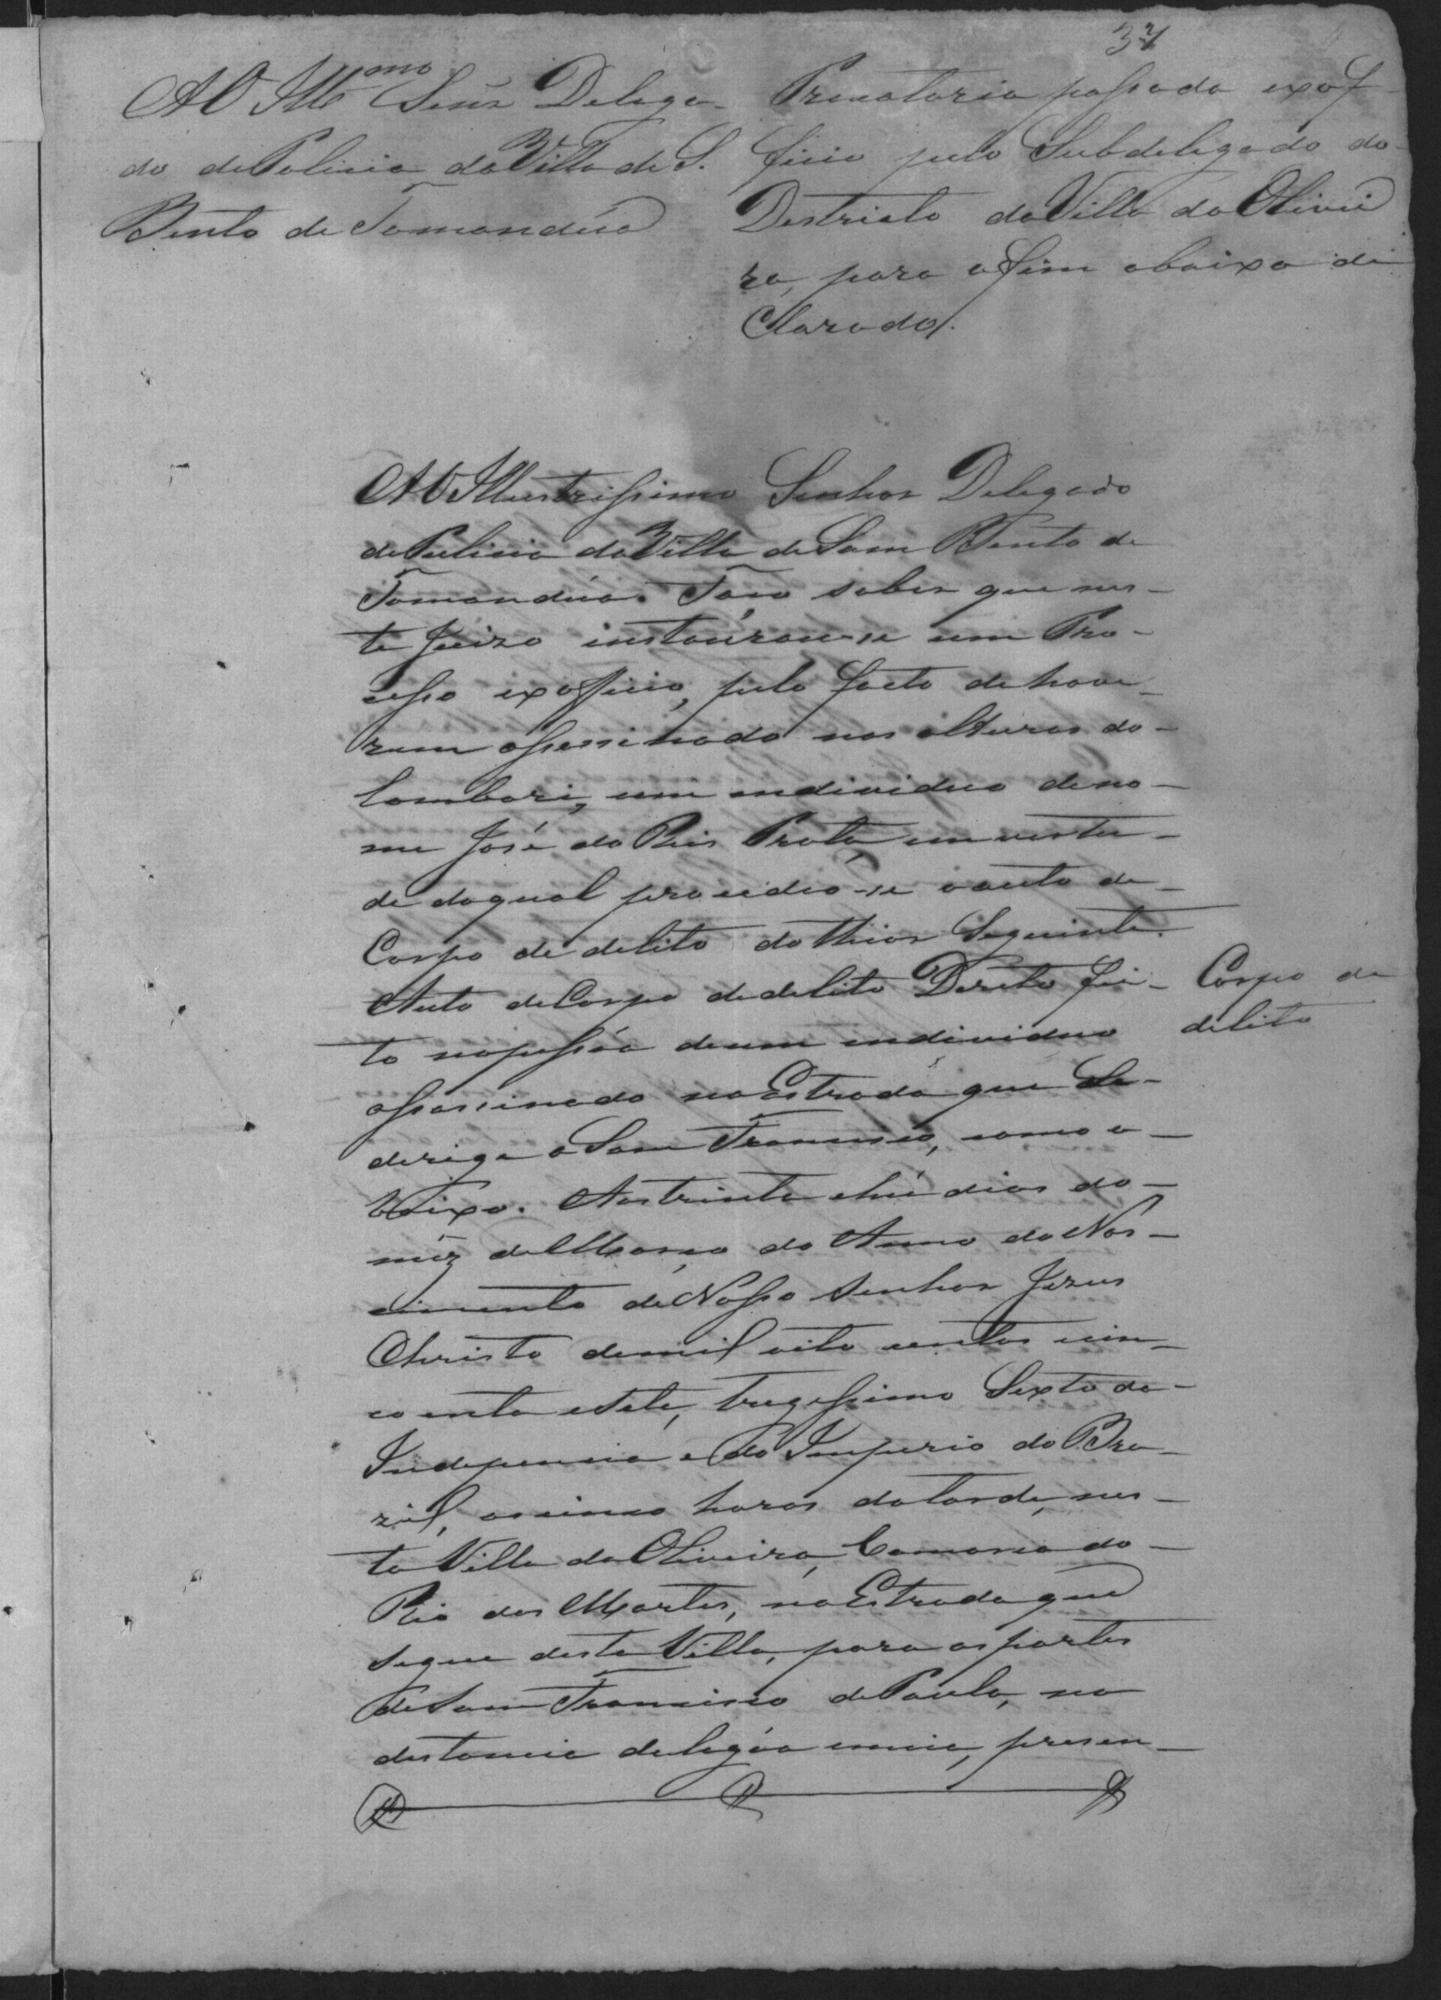 37
AO Illmo Senr Delega-
do de Policia da Villa de S.
Bento de Tamanduá
Precatoria passada exof-
ficio pelo Subdelegado do
Destricto da Villa da Olivei
ra, para o fim abaixo de
Clarado.
AO Illustrissimo Senhor Delegado
de Policia da Villa de Sam Bento de
Tamanduá. Faço saber que nes-
te Juizo instaurou-se um Pro-
cesso exofficio, pelo facto de have-
rem assassinado nas alturas do
Lambari, um individuo de no-
me José do Reis Prata, em vertu-
de do qual procedeo-se o auto de
Corpo de delito do theor Seguinte.
Auto de Corpo de delito Dereto fei-
to na pessôa de um individuo
assassinado na Estrada que Se
derige a Sam Francisco, como a-
baixo. Aos trinta e hú dias do
mêz de Março do Anno do Nas-
cimento de Nosso Senhor Jezus
Christo de mil oito centos cin-
coenta e Sete, tregessimo Sexto da
Independencia e do Imperio do Bra-
zil, as cinco horas da tarde, nes-
ta Villa da Oliveira, Comarca do
Rio das Mortes, na Estrada que
segue desta Villa, para as partes
de Sam Francisco de Paula, na
destancia de legôa e meia, presen-
Corpo de
delito